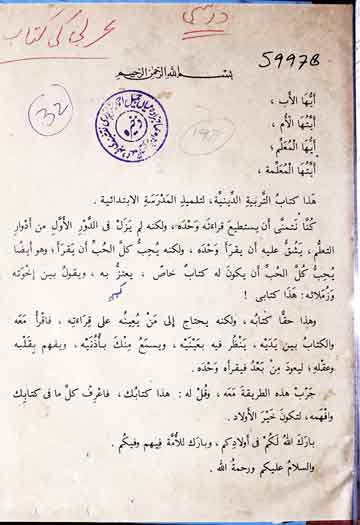 درسی
عربی کی کتاب
59976
بسم الله الرحمن الرحيم
32
أيُّهَا الأَب ،
أيَّتُهَا الأُم ،
أيُّهَا المُعَلِّم ؛
أيَّتُهَا المُعَلِّمة ،
هَذا كتابُ التَّربِيَةِ الدِّينِيَّة ، لتلميذِ المَدْرَسَةِ الابتدائية .
كُنَّا نَتَمنَّى أن يستطيعَ قراءَتَه وَحْدَه ، ولكنه لم يَزَلْ فى الدَّوْرِ الأَوَّلِ من أدْوارِ
التعلُّم ، يَشُقُّ عليه أن يَقرَأ وَحْدَه ، ولكنه يُحِبُّ كلَّ الحُبِّ أن يَقرَأ ؛ وهو أيضًا
يُحِبُّ كُلَّ الحُبِّ أن يكونَ له كتابٌ خاصٌّ ، يعتزُّ به ، ويقولُ بين إخْوَته
وزُمَلائه : هَذَا كتابى !
وهذا حقًّا كتابُه ، ولكنه يحتاج إلى مَنْ يُعِينُه على قِرَاءَتِه ، فاقْرأْ مَعَه
والكتابُ بين يَدَيْه ، يَنْظُر فيه بعَيْنَيْه ، ويسمَعُ مِنْكَ بأُذُنَيْه ، ويفهم بِقَلْبِه
وعقله ؛ ليعودَ مِنْ بَعْدُ فيقرأَه وَحْدَه .
جَرِّبْ هذه الطريقةَ مَعَه ، وقُلْ له : هذا كتابُك ، فاعْرِفْ كلَّ ما فى كتابِك
وافْهَمه ، لتكونَ خَيْرَ الأولاد .
بارَكَ اللهُ لَكُمْ فى أولادِكم ، وبارَك للأُمَّة فِيهم وفيكُم .
والسلامُ عليكم ورحمةُ الله .